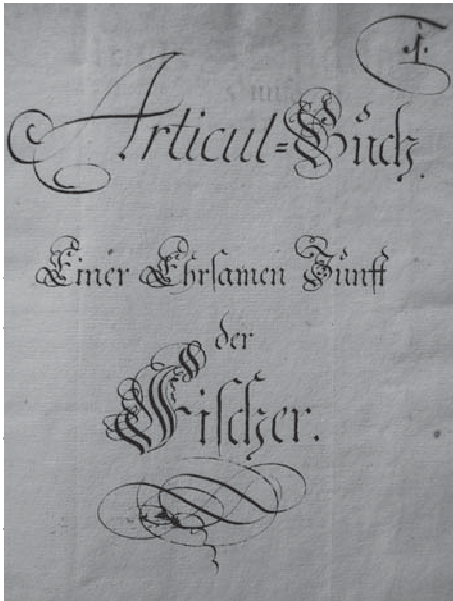 1.
Articul=Buch.
Einer Ehrsamen Zunfft
der
Fischer.